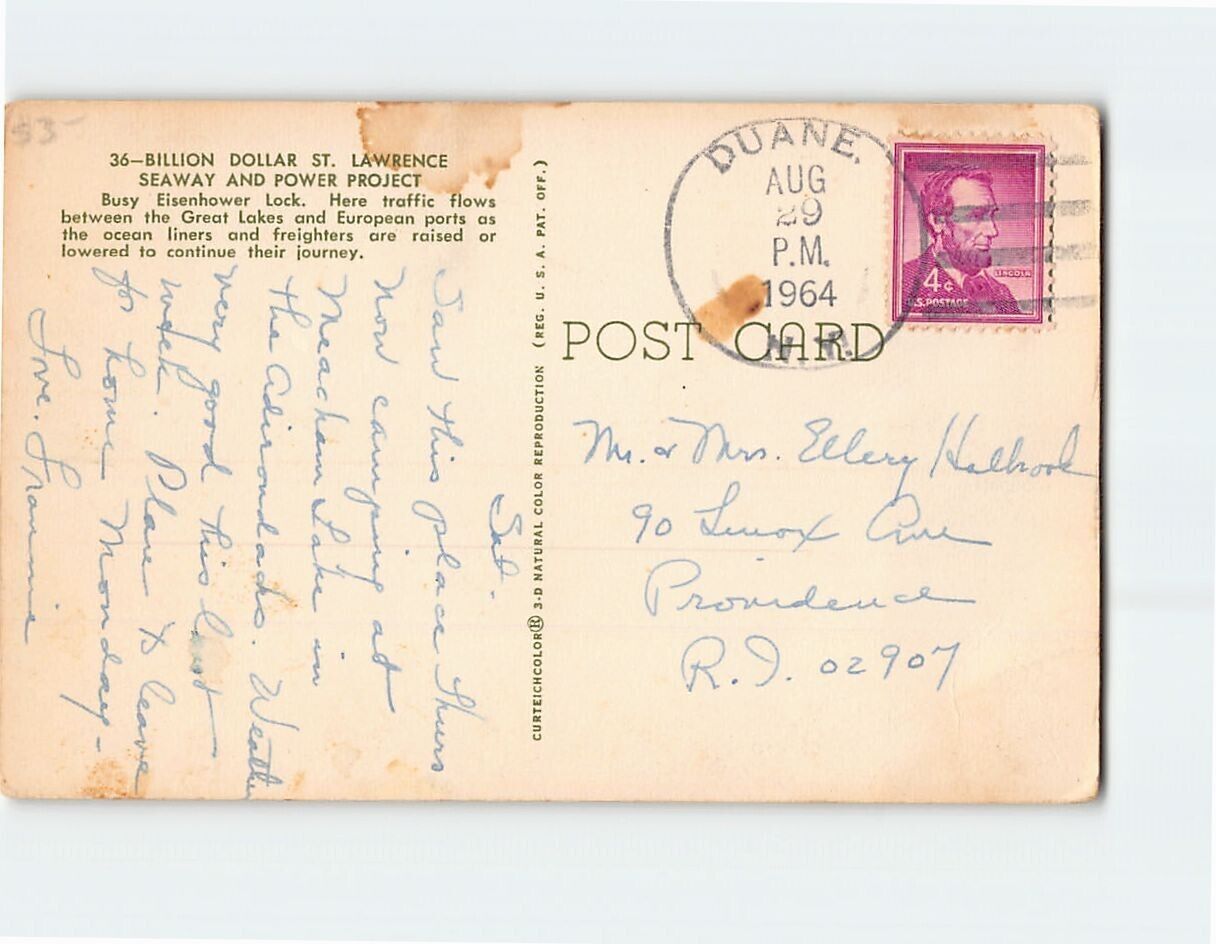 53
36—BILLION DOLLAR ST. LAWRENCE
SEAWAY AND POWER PROJECT
Busy Eisenhower Lock. Here traffic flows
between the Great Lakes and European ports as
the ocean liners and freighters are raised or
lowered to continue their journey.
Sat.
Saw this place Thurs
Now camping at
Meacham Lake in
the Adirondacks. Weather
very good this last
week. Plan to leave
for home Monday -
Love. Frannie
CURTEICHCOLOR® 3-D NATURAL COLOR REPRODUCTION (REG. U. S. A. PAT. OFF.)
DUANE,
AUG
29
P.M.
1964
LINCOLN
4¢
U.S. POSTAGE
POST CARD
Mr. & Mrs. Ellery Holbrook
90 Lenox Ave
Providence
R.I. 02907